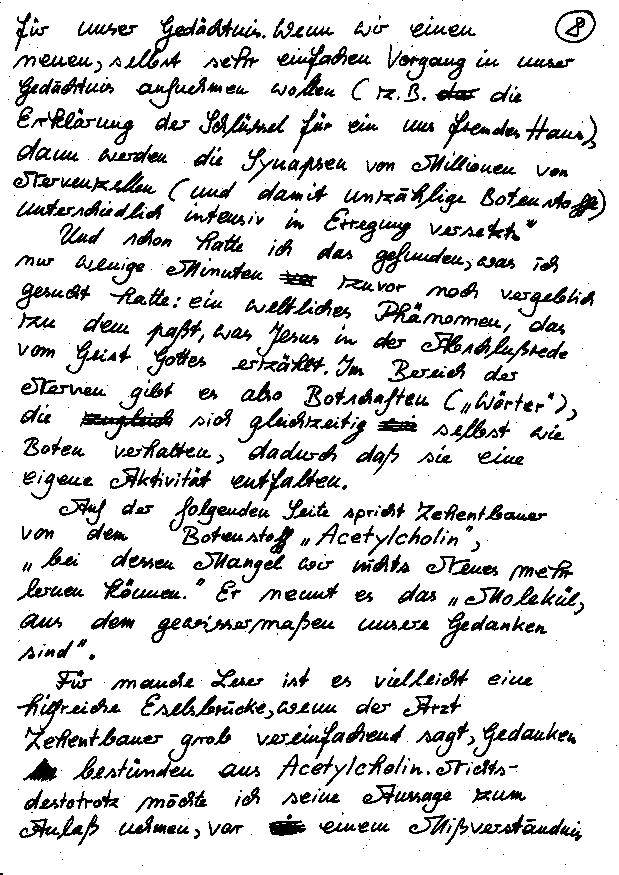 für unser Gedächtnis. Wenn wir einen 8
neuen, selbst sehr einfachen Vorgang in unser
Gedächtnis aufnehmen wollen (z.B. die
Erklärung der Schlüssel für ein uns fremdes Haus),
dann werden die Synapsen von Millionen von
Nervenzellen (und damit unzählige Botenstoffe)
unterschiedlich intensiv in Erregung versetzt."
Und schon hatte ich das gefunden, was ich
nur wenige Minuten zuvor noch vergeblich
gesucht hatte: ein weltliches Phänomen, das
zu dem paßt, was Jesus in der Abschlußrede
vom Geist Gottes erzählt. Im Bereich der
Nerven gibt es also Botschaften („Wörter"),
die sich gleichzeitig selbst wie
Boten verhalten, dadurch daß sie eine
eigene Aktivität entfalten.
Auf der folgenden Seite spricht Zehentbauer
von dem Botenstoff „Acetylcholin",
„bei dessen Mangel wir nichts Neues mehr
lernen können." Er nennt es das „Molekül,
aus dem gewissermaßen unsere Gedanken
sind".
Für manche Leser ist es vielleicht eine
hilfreiche Eselsbrücke, wenn der Arzt
Zehentbauer grob vereinfachend sagt, Gedanken
bestünden aus Acetylcholin. Nichts-
destotrotz möchte ich seine Aussage zum
Anlaß nehmen, vor einem Mißverständnis